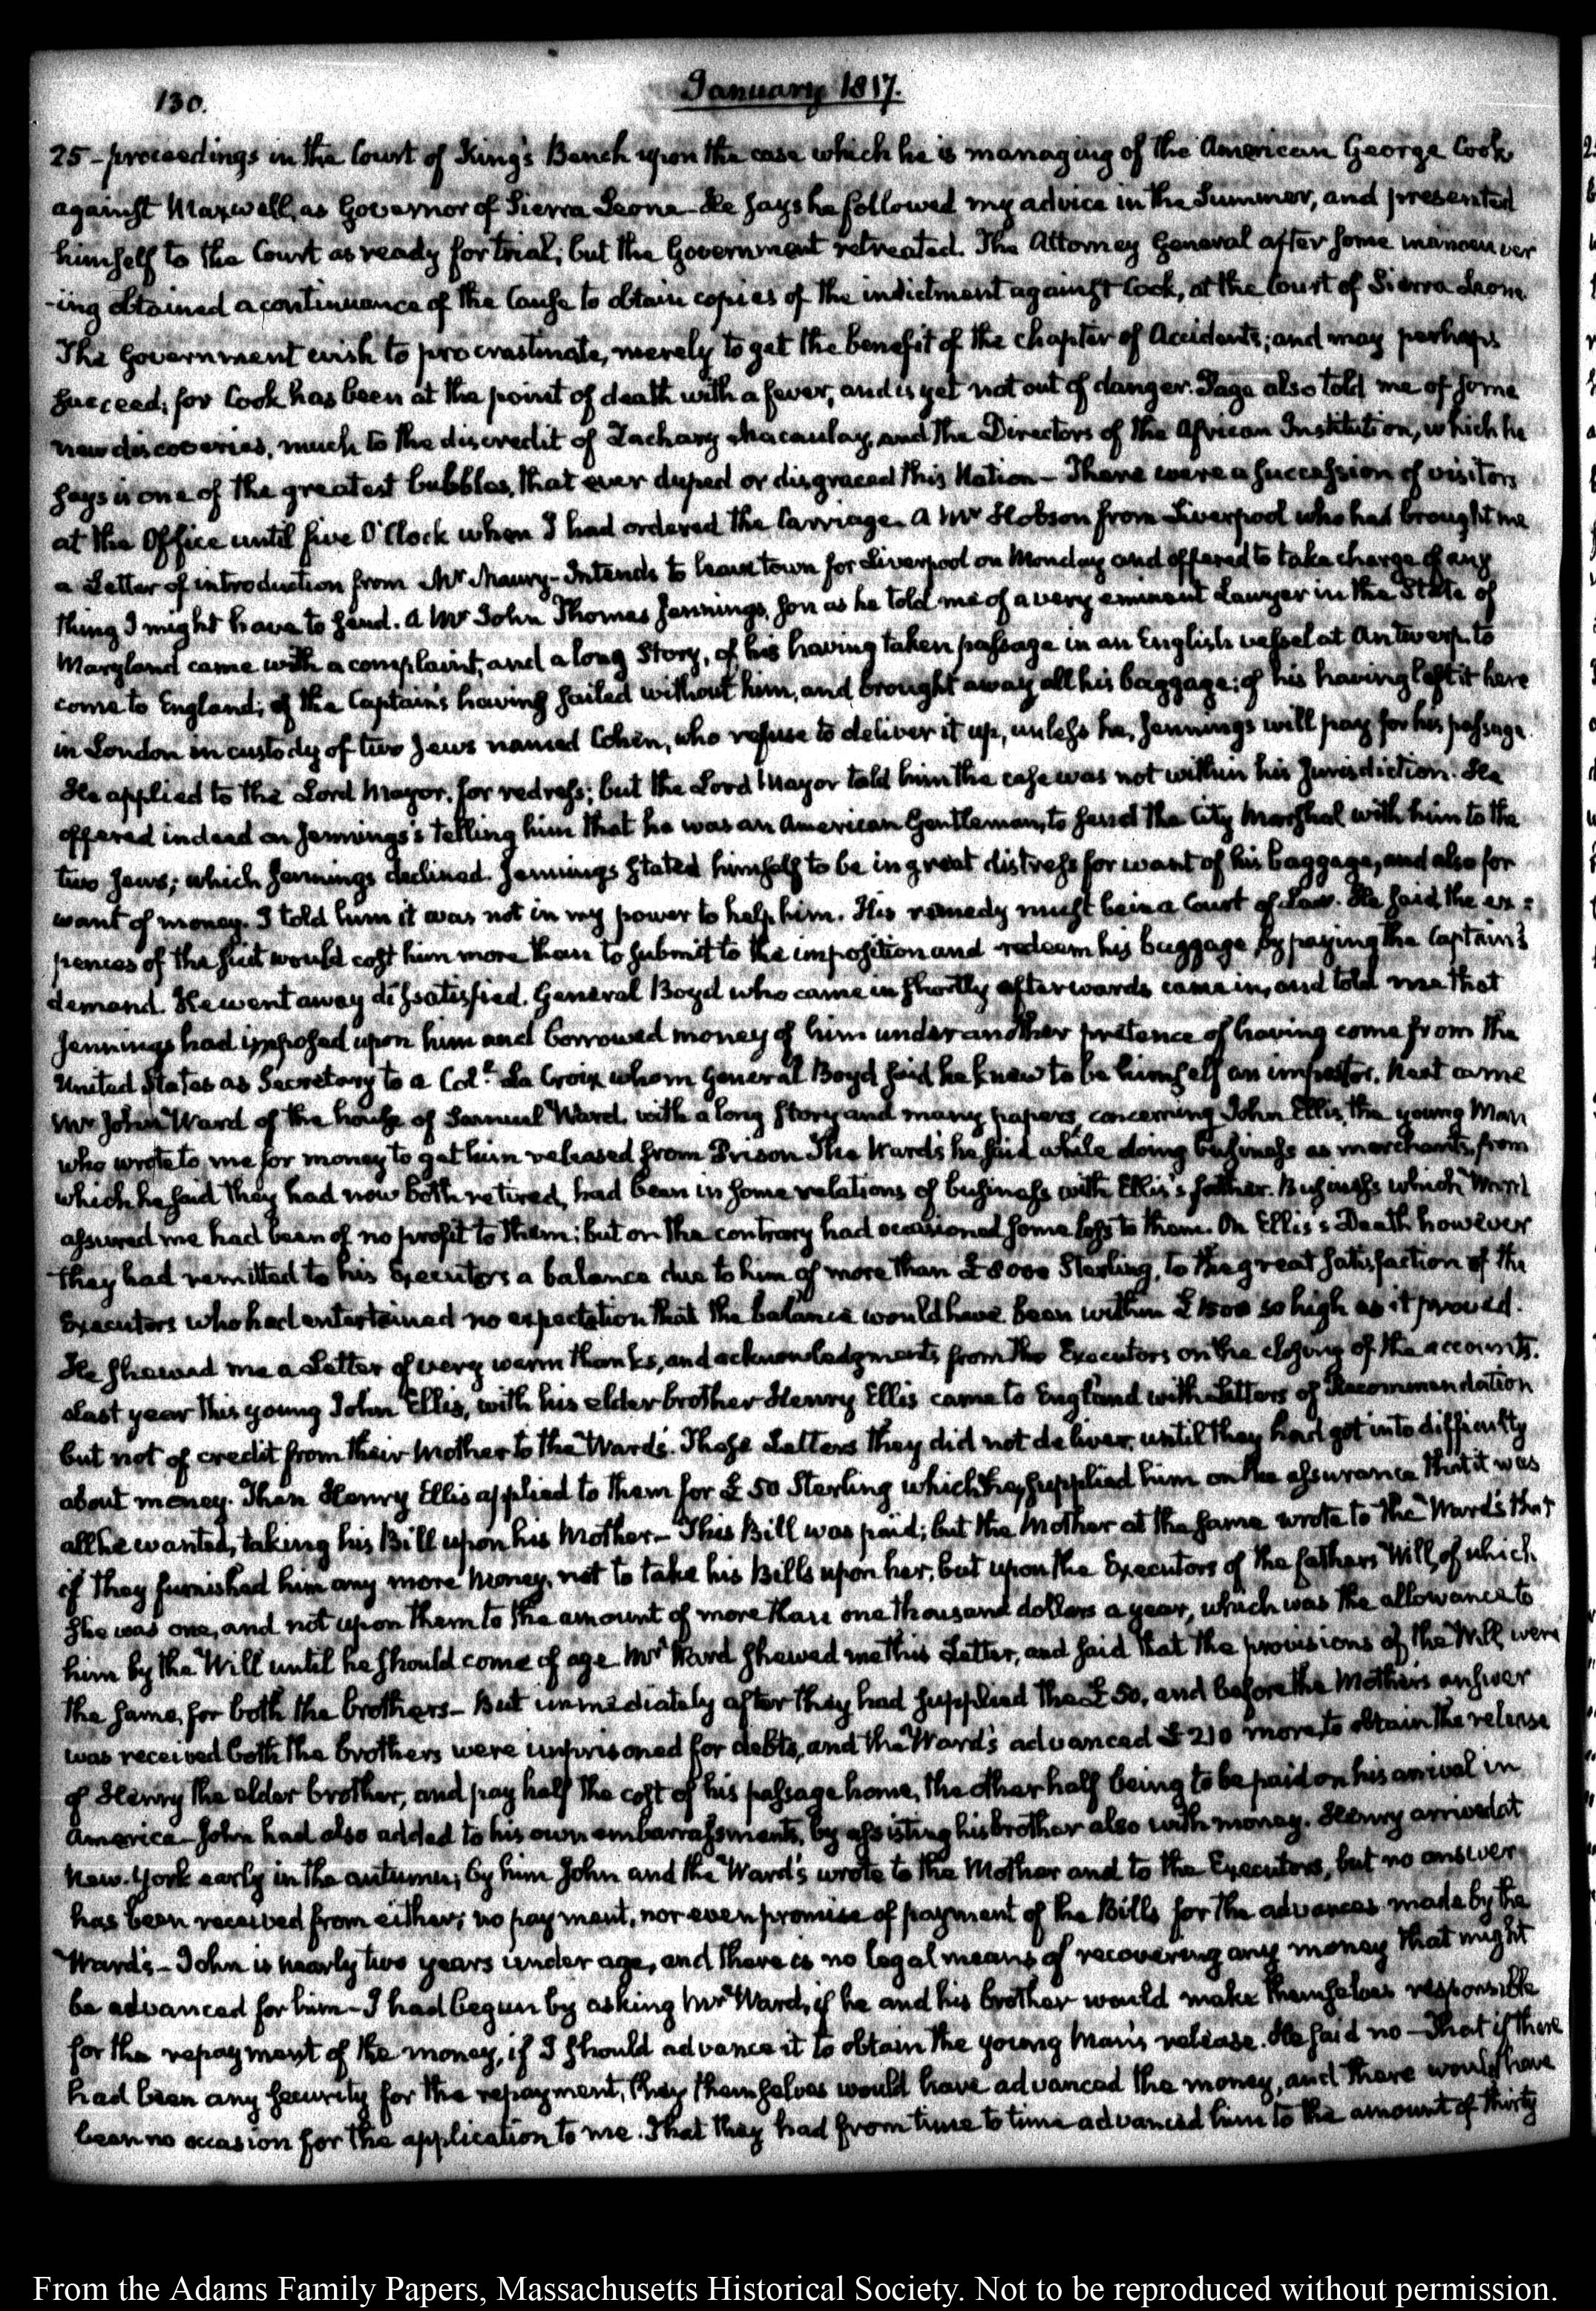 130.
January 1817.
25 - proceedings in the Court of King's Bench upon the case which he is managing of the American George Cook
against Maxwell, as Governor of Sierra Leone - He says he followed my advice in the Summer, and presented
himself to the Court as ready for trial; but the Government retreated. The Attorney General after some manoeuver
-ing obtained a continuance of the Cause to obtain copies of the indictment against Cook, at the Court of Sierra Leone.
The Government wish to procrastinate, merely to get the benefit of the chapter of Accidents; and may perhaps
succeed; for Cook has been at the point of death with a fever, and is yet not out of danger. Page also told me of some
new discoveries, much to the discredit of Zachary Macaulay, and the Directors of the African Institution, which he
says is one of the greatest bubbles, that ever duped or disgraced this Nation - There were a succession of visitors
at the Office until five O'Clock when I had ordered the Carriage. A Mr Hobson from Liverpool who had brought me
a Letter of introduction from Mr Maury - Intends to leave town for Liverpool on Monday and offered to take charge of any
thing I might have to send. A Mr John Thomas Jennings, son as he told me of a very eminent Lawyer in the State of
Maryland came with a complaint, and a long Story, of his having taken passage in an English vessel at Antwerp to
come to England; of the Captain's having sailed without him, and brought away all his baggage; of his having left it here
in London in custody of two Jews named Cohen, who refuse to deliver it up, unless he, Jennings will pay for his passage.
He applied to the Lord Mayor, for redress; but the Lord Mayor told him the case was not within his Jurisdiction. He
offered indeed on Jennings's telling him that he was an American Gentleman, to send the City Marshal with him to the
two Jews; which Jennings declined. Jennings stated himself to be in great distress for want of his baggage, and also for
want of money. I told him it was not in my power to help him. His remedy must be in a Court of Law. He said the ex=
pences of the suit would cost him more than to submit to the imposition and redeem his baggage by paying the Captain's
demand. He went away dissatisfied. General Boyd who came in shortly afterwards came in, and told me that
Jennings had imposed upon him and borrowed money of him under another pretence of having come from the
United States as Secretary to a Col. La Croix whom General Boyd said he knew to be himself an impostor. Next came
Mr John Ward of the house of Samuel Ward, with a long story and many papers, concerning John Ellis, the young Man
who wrote to me for money to get him released from Prison The Ward's he said while doing business as merchants, from
which he said they had now both retired, had been in some relations of business with Ellis's father. Business which Ward
assured me had been of no profit to them; but on the contrary had occasioned some loss to them. On Ellis's Death however
they had remitted to his Executors a balance due to him of more than £8000 Sterling, to the great satisfaction of the
Executors who had entertained no expectation that the balance would have been within £1500 so high as it proved.
He shewed me a Letter of very warm thanks, and acknowledgments from the Executors on the closing of the accounts.
Last year this young John Ellis, with his elder brother Henry Ellis came to England with Letters of Recommendation
but not of credit from their Mother to the Wards. These Letters they did not deliver, until they had got into difficulty
about money. Then Henry Ellis applied to them for £50 Sterling which they supplied him on the assurance that it was
all he wanted, taking his Bill upon his Mother - This Bill was paid; but the Mother at the same wrote to the Ward's that
if they furnished him any more Money, not to take his Bills upon her; but upon the Executors of the fathers Will, of which
she was one, and not upon them to the amount of more than one thousand dollars a year, which was the allowance to
him by the Will until he should come of age Mr Ward shewed me this Letter, and said that the provisions of the Will were
the same, for both the brothers - But immediately after they had supplied the £50, and before the Mother's answer
was received both the brothers were imprisoned for debts, and the Ward's advanced £210 more, to obtain the release
of Henry the elder brother, and pay half the cost of his passage home, the other half being to be paid on his arrival in
America - John had also added to his own embarrassments, by assisting his brother also with money. Henry arrived at
New-York early in the autumn; by him John and the Ward's wrote to the Mother and to the Executors, but no answer
has been received from either; no payment, nor even promise of payment of the Bills for the advances made by the
Ward's - John is nearly two years under age, and there is no legal means of recovering any money that might
be advanced for him - I had begun by asking Mr Ward, if he and his brother would make themselves responsible
for the repayment of the money, if I should advance it to obtain the young Man's release. He said no - That if there
had been any security for the repayment, they themselves would have advanced the money, and there would have
been no occasion for the application to me. That they had from time to time advanced him to the amount of thirty
From the Adams Family Papers, Massachusetts Historical Society. Not to be reproduced without permission.